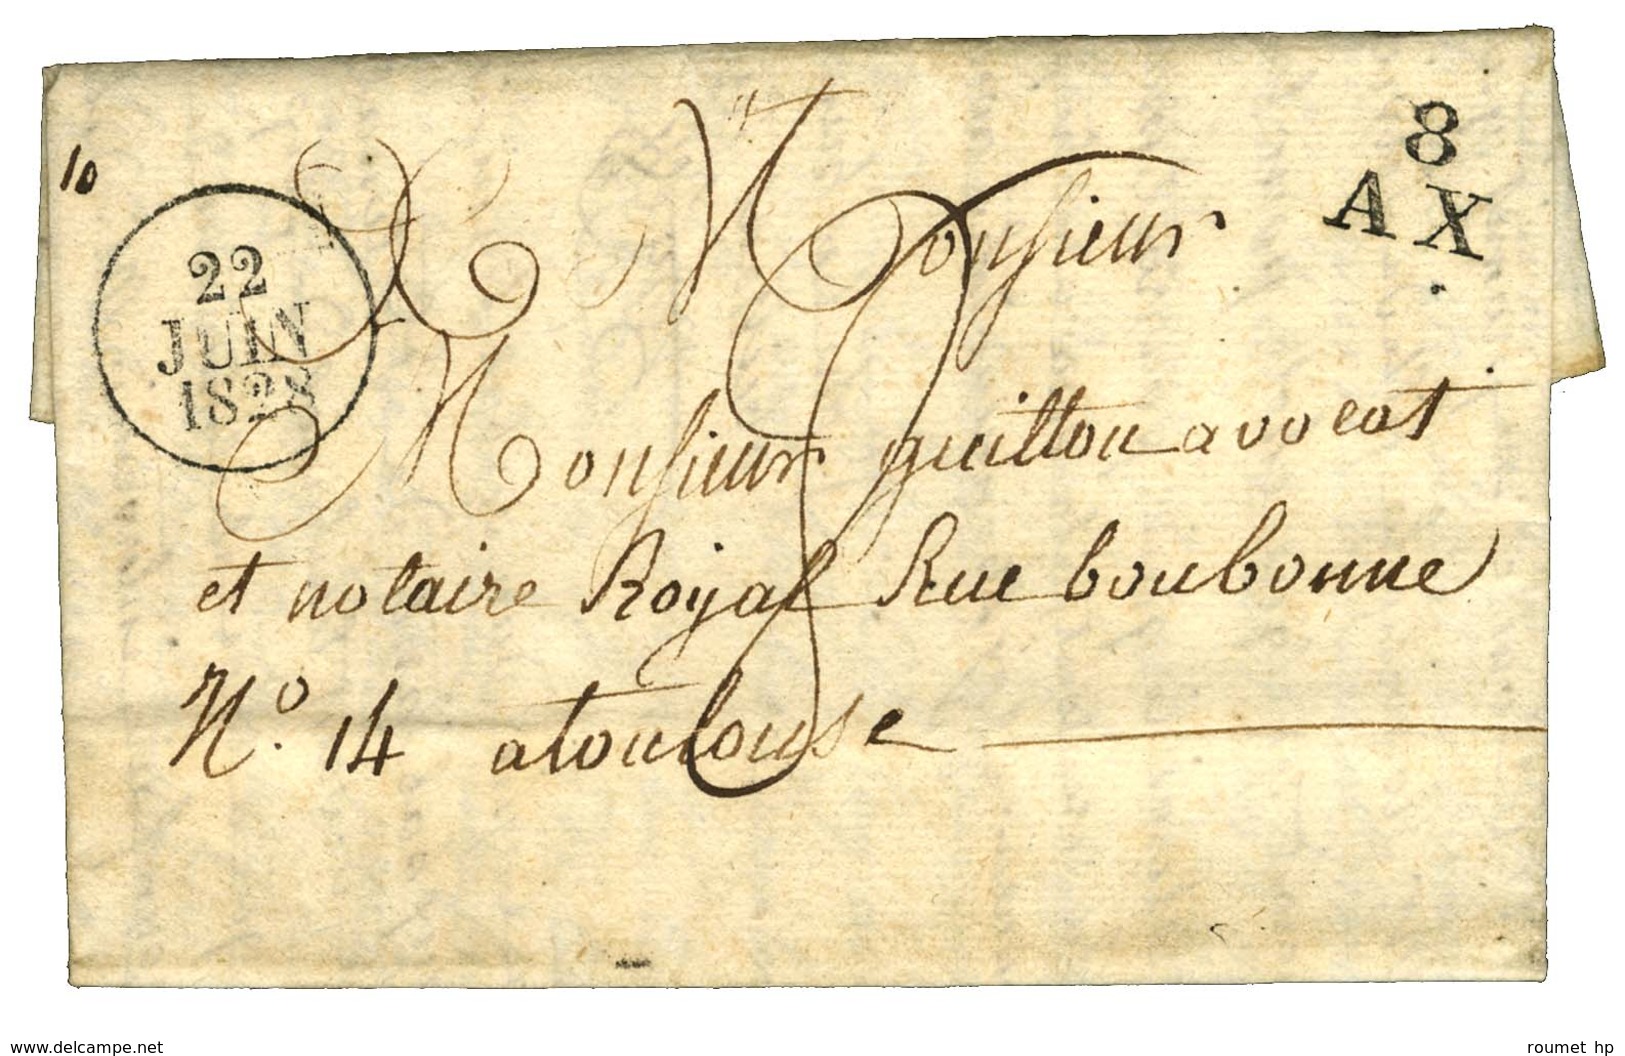 10
8
AX
22
JUIN
1828
A Monsieur
Monsieur guittou avocat
et notaire Royal Rue boubonne
N.o 14 a toulouse
www.delcampe.net
roumet hp